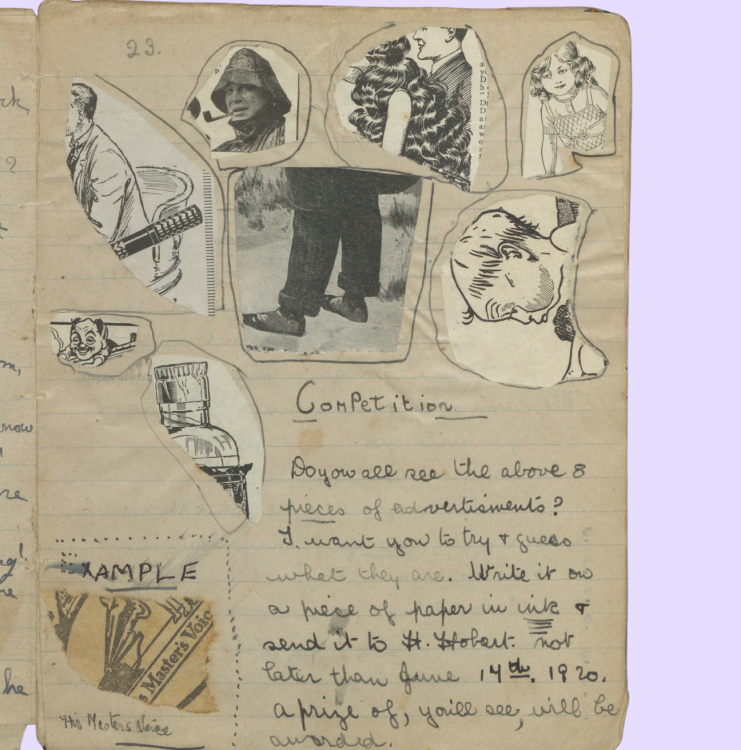 23.
Competition
Do you all see the above 8
pieces of advertisments?
I want you to try & guess
what they are. Write it on
a piece of paper in ink &
send it to H. Hobart. not
later than June 14th. 1920.
a prize of, you'll see, will be
awarded.
EXAMPLE
s Master's Voic
His Masters Voice
ck,
?
m,
now
re
ng!
re
he